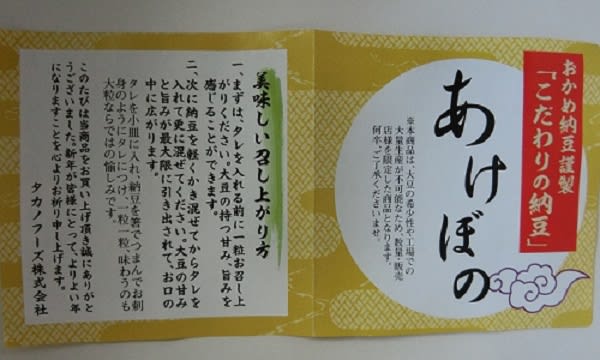 おかめ納豆謹製
「こだわりの納豆」
あけぼの
※本商品は、大豆の希少性や工場での
大量生産が不可能なため、数量・販売
店様を限定した商品となります。
何卒、ご了承くださいませ。
美味しい召し上がり方
一、まずは、タレを入れる前に一粒お召し上
がりください。大豆の持つ甘み、旨みを
感じることができます。
二、次に納豆を軽くかき混ぜてからタレを
入れて更に混ぜてください。大豆の甘み
と旨みが最大限に引き出されて、お口の
中に広がります。
タレを小皿に入れ、納豆を箸でつまんでお刺
身のようにタレにつけ、一粒一粒、味わうのも
大粒ならではの愉しみです。
このたびは当商品をお買い上げ頂き誠にありがと
うございました。新年が皆様にとって、よりよい年
になりますことを心よりお祈り申し上げます。
タカノフーズ株式会社